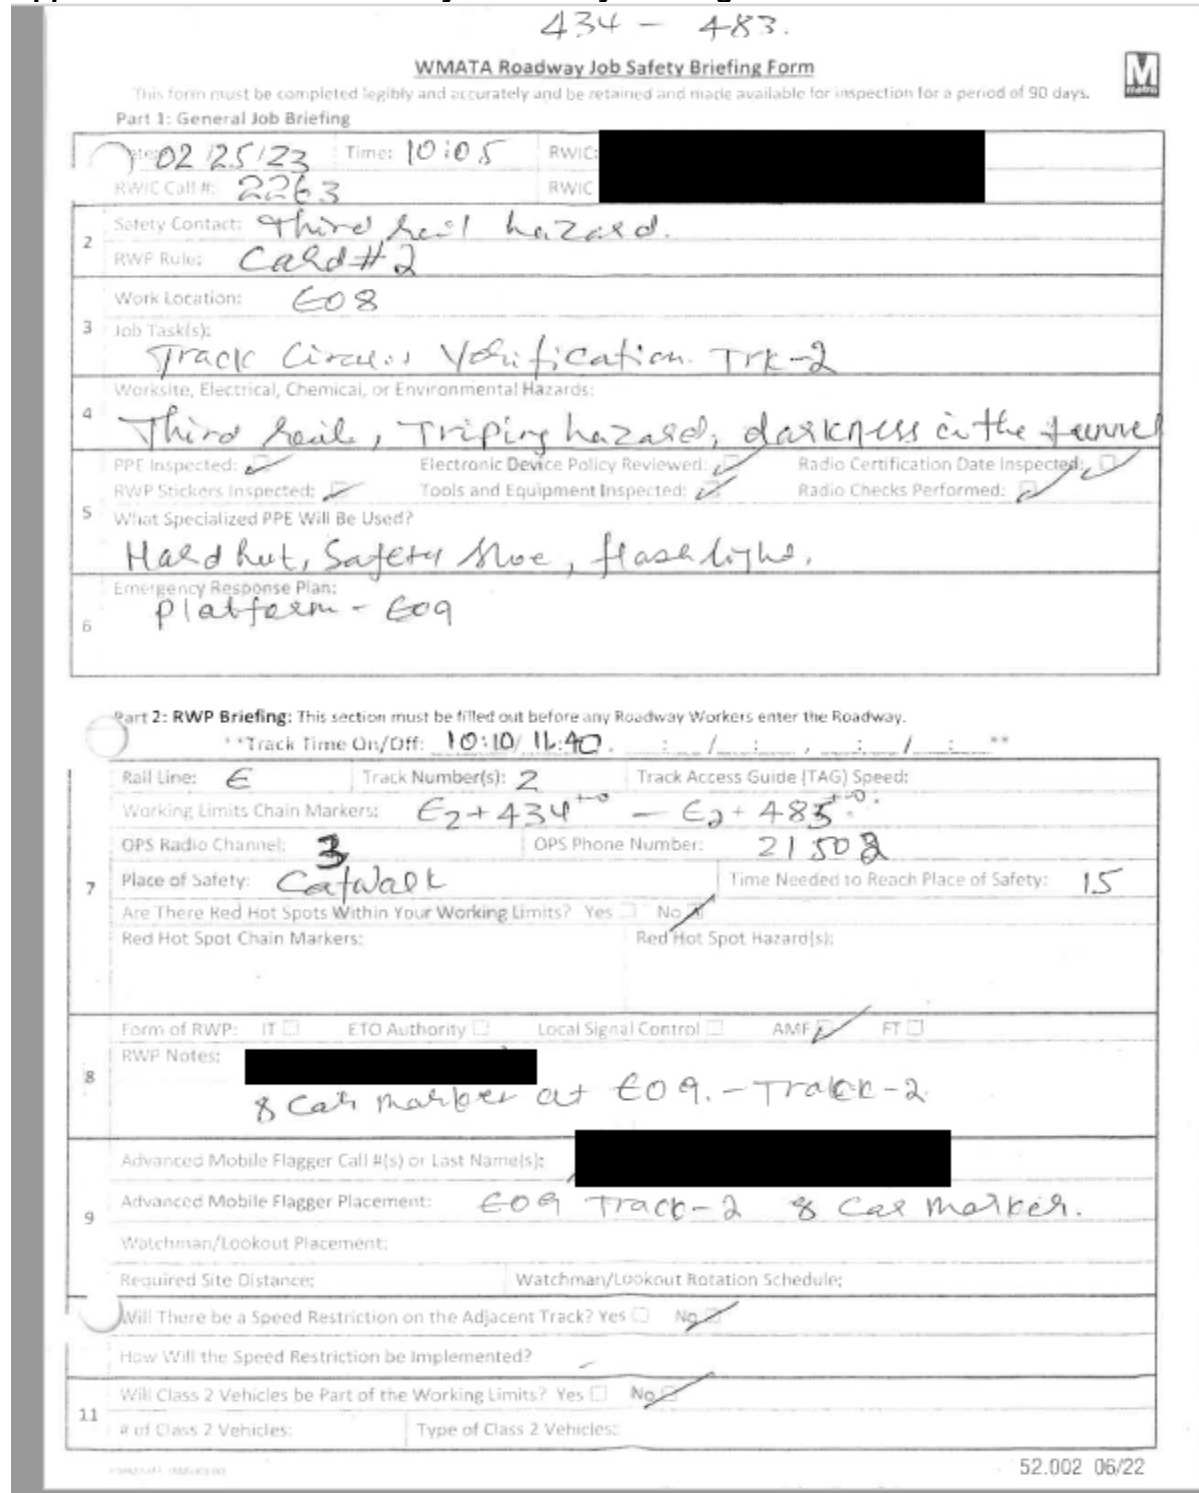 434 - 483.
WMATA Roadway Job Safety Briefing Form
metro
This form must be completed legibly and accurately and be retained and made available for inspection for a period of 90 days.
Part 1: General Job Briefing
02/25/23 Time: 10:05 RWIC:
RWIC Call #: 2263 RWIC
2 Safety Contact: Third Rail hazard.
RWP Rule: Card #2
Work Location: E08
3 Job Task(s):
Track Circuit Verification. Trk-2
Worksite, Electrical, Chemical, or Environmental Hazards:
4 Third Rail, Triping hazard, darkness in the tunnel
PPE Inspected: Electronic Device Policy Reviewed: Radio Certification Date Inspected:
RWP Stickers Inspected: Tools and Equipment Inspected: Radio Checks Performed:
5 What Specialized PPE Will Be Used?
Hard hut, Safety Shoe, flash light.
Emergency Response Plan:
6 Platform - E09
Part 2: RWP Briefing: This section must be filled out before any Roadway Workers enter the Roadway.
**Track Time On/Off: 10:10/ 11:40. : / : , : / : **
Rail Line: E Track Number(s): 2 Track Access Guide (TAG) Speed:
Working Limits Chain Markers: E2+434+0 - E2+485+0.
OPS Radio Channel: 3 OPS Phone Number: 21502
7 Place of Safety: Catwalk Time Needed to Reach Place of Safety: 15
Are There Red Hot Spots Within Your Working Limits? Yes No
Red Hot Spot Chain Markers: Red Hot Spot Hazard(s):
Form of RWP: IT ETO Authority Local Signal Control AMF FT
8 RWP Notes:
8 Car marker at E09. - Track-2
Advanced Mobile Flagger Call #(s) or Last Name(s):
9 Advanced Mobile Flagger Placement: E09 Track-2 8 Car Marker.
Watchman/Lookout Placement:
Required Site Distance: Watchman/Lookout Rotation Schedule:
Will There be a Speed Restriction on the Adjacent Track? Yes No
How Will the Speed Restriction be Implemented? -
11 Will Class 2 Vehicles be Part of the Working Limits? Yes No
# of Class 2 Vehicles: Type of Class 2 Vehicles:
52.002 06/22